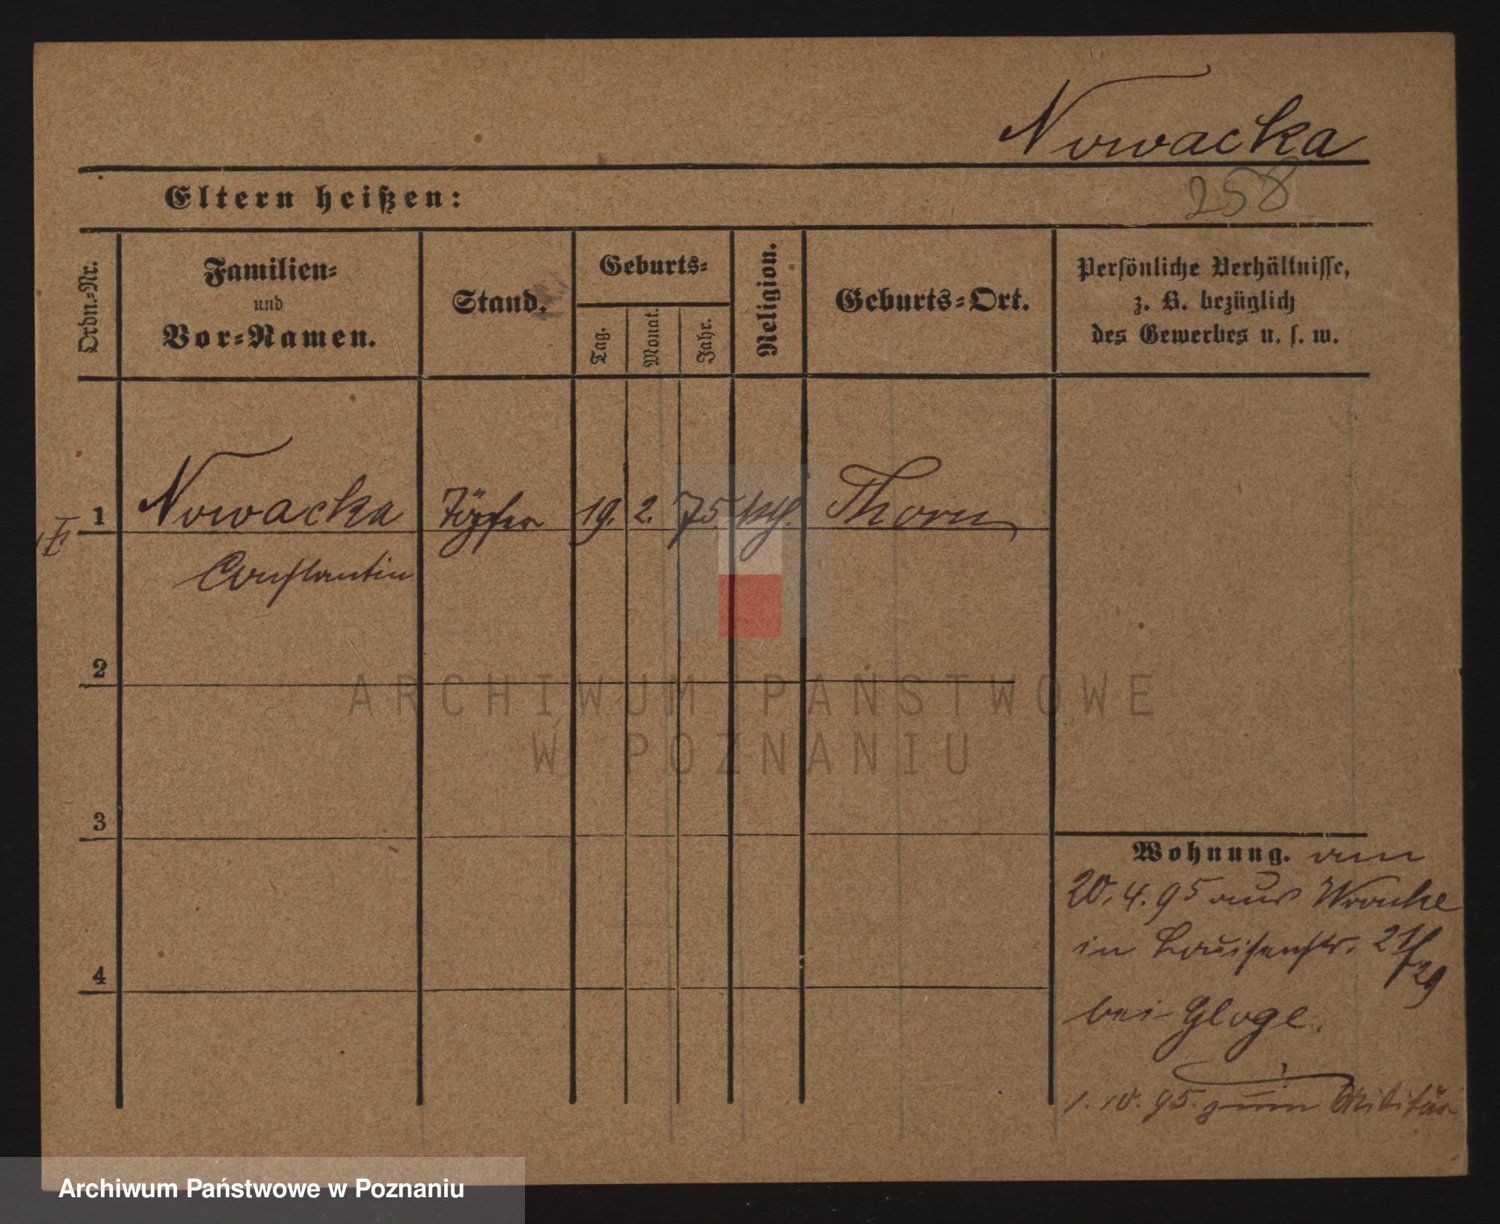 Nowacka
258
Eltern heißen:
Ordn.-Nr.
Familien-
und
Vor-Namen.
Stand.
Geburts-
Tag.
Monat.
Jahr.
Religion.
Geburts-Ort.
Persönliche Verhältnisse,
z. B. bezüglich
des Gewerbes u. s. w.
1 Nowacka Töpfer 19. 2. 75 kth. Thorn
Constantin
2
3
4
Wohnung. am
20. 4. 95 aus Wronke
in Louisenstr. 21/29
bei Gloge.
1. 10. 95 zum Militär
ARCHIWUM PAŃSTWOWE
W POZNANIU
Archiwum Państwowe w Poznaniu